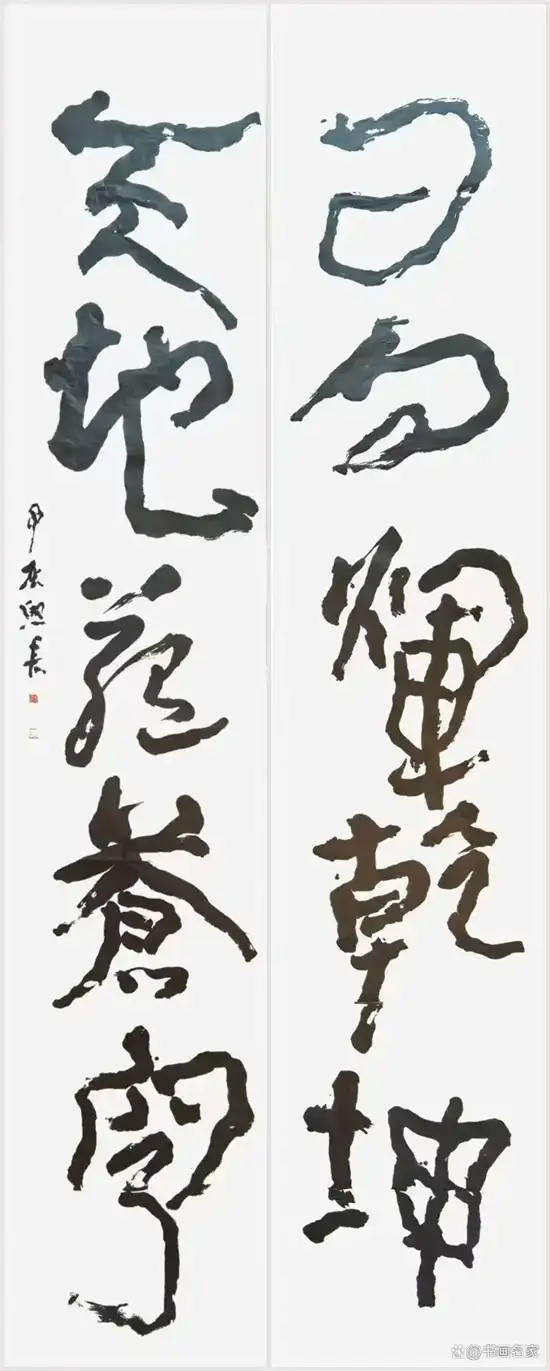 日月輝乾坤
天地蒼穹
甲辰興長
@书画名家